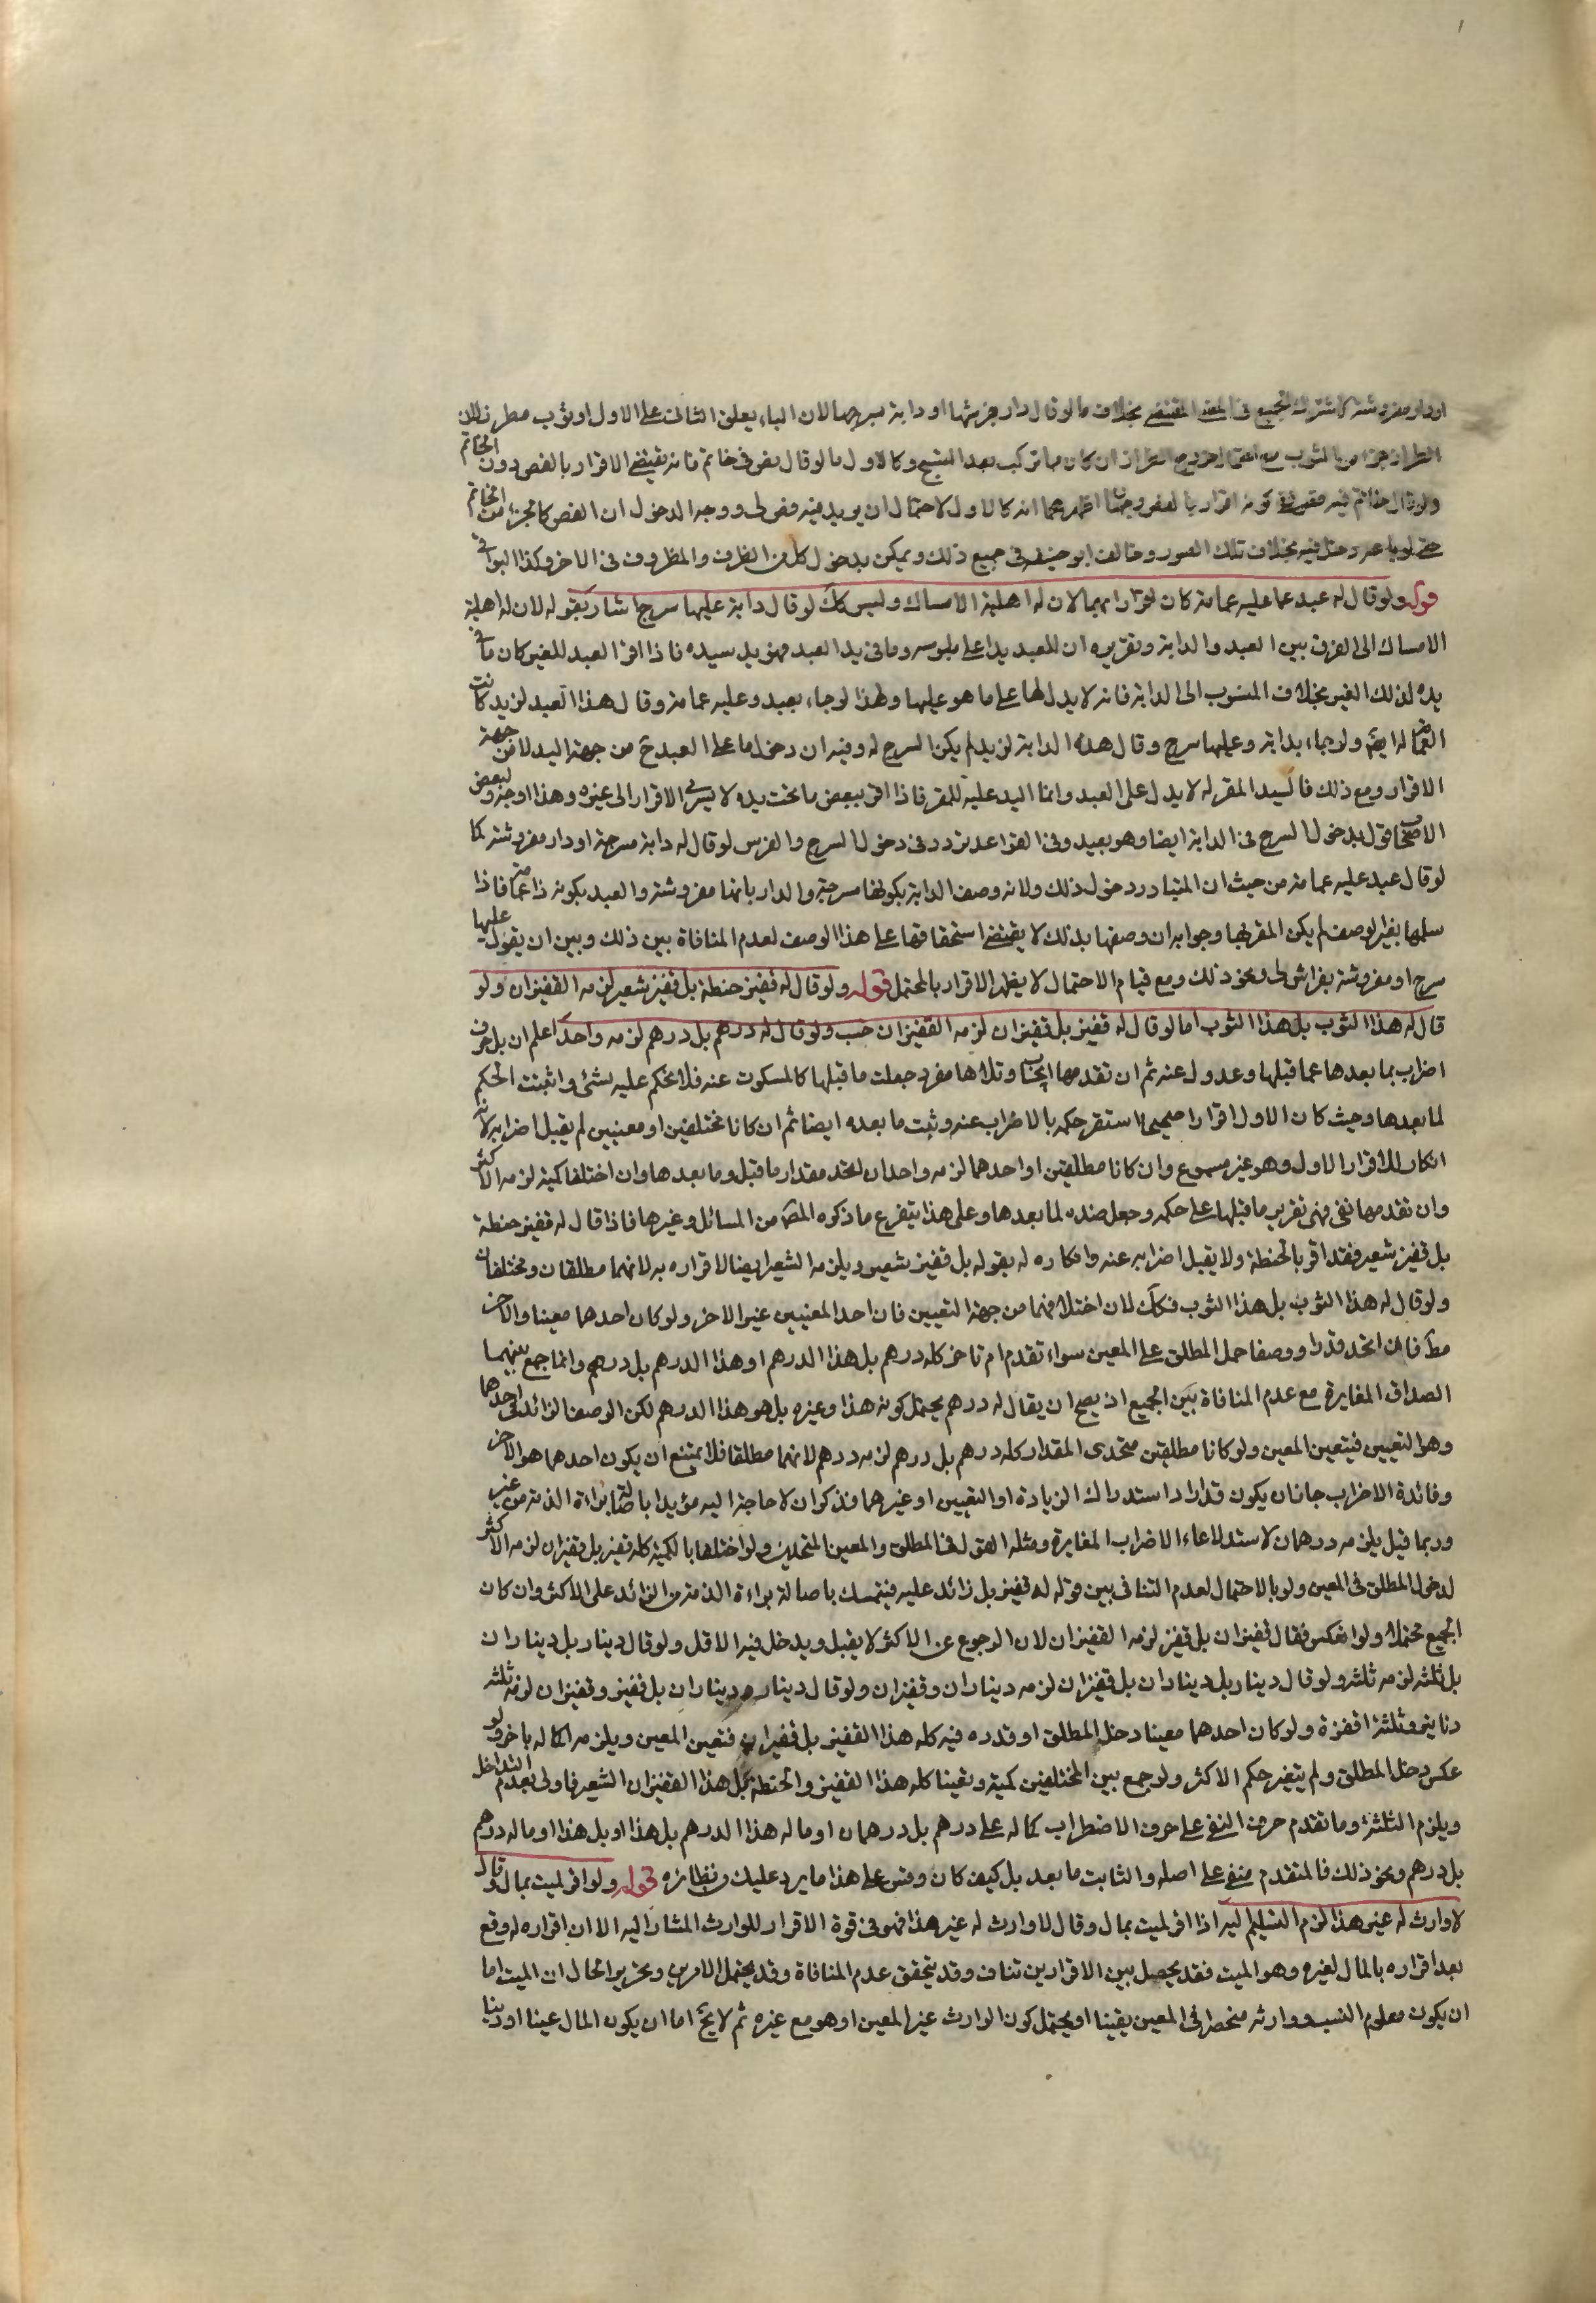 او دار مفروشة لاشتراك الجميع في المعنى المقتضي بخلاف ما لو قال دار بفرشها او دابة بسرجها لان الباء يعلق الثاني على الاول او ثوب مطرز لان
الطراز جزء من الثوب مع احتمال خروج الطراز ان كان مما تركب بعد النسج وكالاول ما لو قال فص في خاتم فانه يقتضي الاقرار بالفص دون الخاتم
ولو قال خاتم فيه فص ففي كونه اقرارا بالفص وجهان اظهرهما انه كالاول لاحتمال ان يريد فيه فص لي ووجه الدخول ان الفص كالجزء من الخاتم
حتى لو باعه دخل فيه بخلاف تلك الصور وخالف ابو حنيفة في جميع ذلك ويمكن بدخول كل من الظرف والمظروف في الاخر وكذا البواقي
قوله ولو قال له عبد عليه عمامة كان اقرارا بهما لان له اهلية الامساك وليس كك لو قال دابة عليها سرج اشار بقوله لان له اهلية
الامساك الى الفرق بين العبد والدابة وتقريره ان للعبد يدا على ملبوسه وما في يد العبد فهو يد سيده فاذا اقر العبد للغير كان ما في
يده لذلك الغير بخلاف المنسوب الى الدابة فانه لا يد لها على ما هو عليها ولهذا لو جاء بعبد وعليه عمامة وقال هذا العبد لزيد كانت
العمامة له ايضا ولو جاء بدابة وعليها سرج وقال هذه الدابة لزيد لم يكن السرج له وفيه ان دخول ما على العبد ح من جهة اليد لا من جهة
الاقرار ومع ذلك فالسيد المقر له لا يد له على العبد وانما اليد عليه للمقر فاذا اقر ببعض ما تحت يده لا يسرى الاقرار الى غيره وهذا اوجه ولبعض
الاصحاب قول بدخول السرج في الدابة ايضا وهو بعيد وفي القواعد تردد في دخول السرج والفرس لو قال له دابة مسرجة او دار مفروشة كما
لو قال عبد عليه عمامة من حيث ان المتبادر دخول ذلك ولانه وصف الدابة بكونها مسرجة والدار بانها مفروشة والعبد بكونه ذا عمامة فاذا
سلمها بغير الوصف لم يكن المقر بها وجوابه ان وصفها بذلك لا يقتضي استحقاقها على هذا الوصف لعدم المنافاة بين ذلك وبين ان يقول عليها
سرج او مفروشة بفراش لي ونحو ذلك ومع قيام الاحتمال لا يظهر الاقرار بالمحتمل قوله ولو قال له قفيز حنطة بل قفيز شعير لزمه القفيزان ولو
قال له هذا الثوب بل هذا الثوب اما لو قال له قفيز بل قفيزان لزمه القفيزان حسب ولو قال له درهم بل درهم لزمه واحد اعلم ان بل حرف
اضراب بما بعدها عما قبلها وعدول عنه ثم ان تقدمها ايجاب وتلاها مفرد جعلت ما قبلها كالمسكوت عنه فلا يحكم عليه بشئ واثبتت الحكم
لما بعدها وحيث كان الاول اقرارا صحيحا استقر حكمه بالاضراب عنه وثبت ما بعده ايضا ثم ان كانا مختلفين او معينين لم يقبل اضرابه لانه
انكار للاقرار الاول وهو غير مسموع وان كانا مطلقين او احدهما لزمه واحد ان اتحد مقدار ما قبل وما بعدها وان اختلفا كمية لزمه الاكثر
وان تقدمها نفي فهي تقرير ما قبلها على حكمه وجعل ضده لما بعدها وعلى هذا يتفرع ما ذكره المص من المسائل وغيرها فاذا قال له قفيز حنطة
بل قفيز شعير فقد اقر بالحنطة ولا يقبل اضرابه عنه وانكاره له بقوله بل قفيز شعير ويلزمه الشعير ايضا لاقراره به لانهما مطلقان ومختلفان
ولو قال له هذا الثوب بل هذا الثوب فكك لان اختلافهما من جهة التعيين فان احد المعنيين غير الاخر ولو كان احدهما معينا والاخر
مط فان اتحد قدرا ووصفا حمل المطلق على المعين سواء تقدم ام تاخر كله درهم بل هذا الدرهم او هذا الدرهم بل درهم وانما جمع بينهما
الصداق المغايرة مع عدم المنافاة بين الجميع اذ يصح ان يقال له درهم يحتمل كونه هذا وغيره بل هو هذا الدرهم لكن الوصف الزائد في احدهما
وهو التعيين فيتعين المعين ولو كانا مطلقين متحدي المقدار كله درهم بل درهم لزمه درهم لانهما مطلقا فلا يمتنع ان يكون احدهما هو الاخر
وفائدة الاضراب جاز ان يكون قد اراد استدراك الزيادة او التعيين او غيرهما فذكر ان لا حاجة اليه مؤيدا باصالة براءة الذمة من غيره
وربما قيل يلزمه درهمان لاستدعاء الاضراب المغايرة ومثله القول في المطلق والمعين المتحدين ولو اختلفا بالكمية كله قفيز بل قفيزان لزمه الاكثر
لدخول المطلق في المعين ولو بالاحتمال لعدم التنافي بين قوله له قفيز بل زائد عليه فيتمسك باصالة براءة الذمة من الزائد على الاكثر وان كان
الجميع محتملا ولو انعكس فقال قفيزان بل قفيز لزمه القفيزان لان الرجوع عن الاكثر لا يقبل ويدخل فيه الاقل ولو قال دينار بل ديناران
بل ثلثة لزمه ثلثة ولو قال دينار بل ديناران بل قفيزان لزمه ديناران وقفيزان ولو قال دينار وديناران بل قفيز وقفيزان لزمه ثلثة
دنانير وثلثة اقفزة ولو كان احدهما معينا دخل المطلق او قدره فيه كله هذا القفيز بل قفيزان فتعين المعين ويلزمه اكماله باخر ولو
عكس دخل المطلق ولم يتغير حكم الاكثر ولو جمع بين المختلفين كمية وتعينا كله هذا القفيز والحنطة بل هذا القفيزان الشعير فاولى بعدم التداخل
ويلزم الثلثة وما تقدم حرف النفي على حرف الاضطراب كما له على درهم بل درهمان او ما له هذا الدرهم بل هذا او بل هذا او ما له درهم
بل درهم ونحو ذلك فالمتقدم منفي على اصله والثابت ما بعد بل كيف كان وقس على هذا ما يرد عليك من نظائره قوله ولو اقر لميت بمال وقال
لا وارث له غير هذا لزم التسليم اليه اذا اقر لميت بمال وقال لا وارث له غير هذا فهو في قوة الاقرار للوارث المشار اليه الا ان اقراره له وقع
بعد اقراره بالمال لغيره وهو الميت فقد يحصل بين الاقرارين تناف وقد يتحقق عدم المنافاة وقد يحتمل الامرين وتحرير الحال ان الميت اما
ان يكون معلوم النسب ووارثه منحصرا في المعين يقينا او يحتمل كون الوارث غير المعين او هو مع غيره ثم لا يخ اما ان يكون المال عينا او دينا